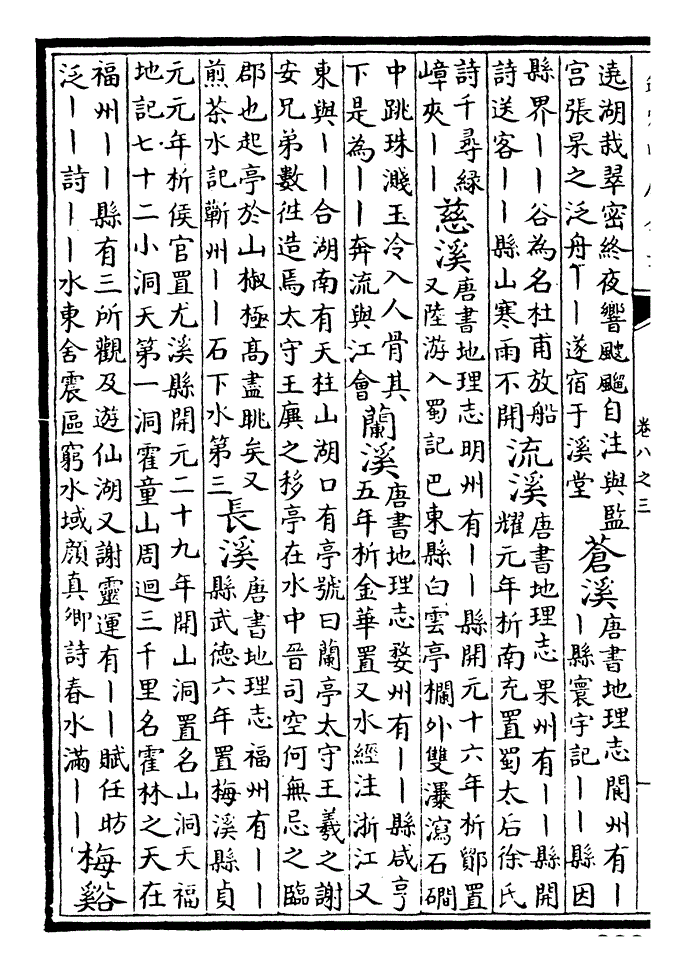 遶湖栽翠密終夜響颼飀自注與監
宮張杲之泛舟丨丨遂宿于溪堂
蒼溪
唐書地理志閬州有丨
丨縣寰宇記丨丨縣因
縣界丨丨谷為名杜甫放船
詩送客丨丨縣山寒雨不開
流溪
唐書地理志果州有丨丨縣開
耀元年析南充置蜀太后徐氏
詩千尋緑
嶂夾丨丨
慈溪
唐書地理志明州有丨丨縣開元十六年析鄮置
又陸游入蜀記巴東縣白雲亭欄外雙瀑瀉石磵
中跳珠濺玉冷入人骨其
下是為丨丨奔流與江會
蘭溪
唐書地理志婺州有丨丨縣咸亨
五年析金華置又水經注浙江又
東與丨丨合湖南有天柱山湖口有亭號曰蘭亭太守王羲之謝
安兄弟數徃造焉太守王廙之移亭在水中晉司空何無忌之臨
郡也起亭於山椒極髙盡眺矣又
煎茶水記蘄州丨丨石下水第三
長溪
唐書地理志福州有丨丨
縣武德六年置梅溪縣貞
元元年析侯官置尤溪縣開元二十九年開山洞置名山洞天福
地記七十二小洞天第一洞霍童山周迴三千里名霍林之天在
福州丨丨縣有三所觀及遊仙湖又謝靈運有丨丨賦任昉
泛丨丨詩丨丨水東舍震區窮水域顔真卿詩春水滿丨丨
梅谿
卷八之三